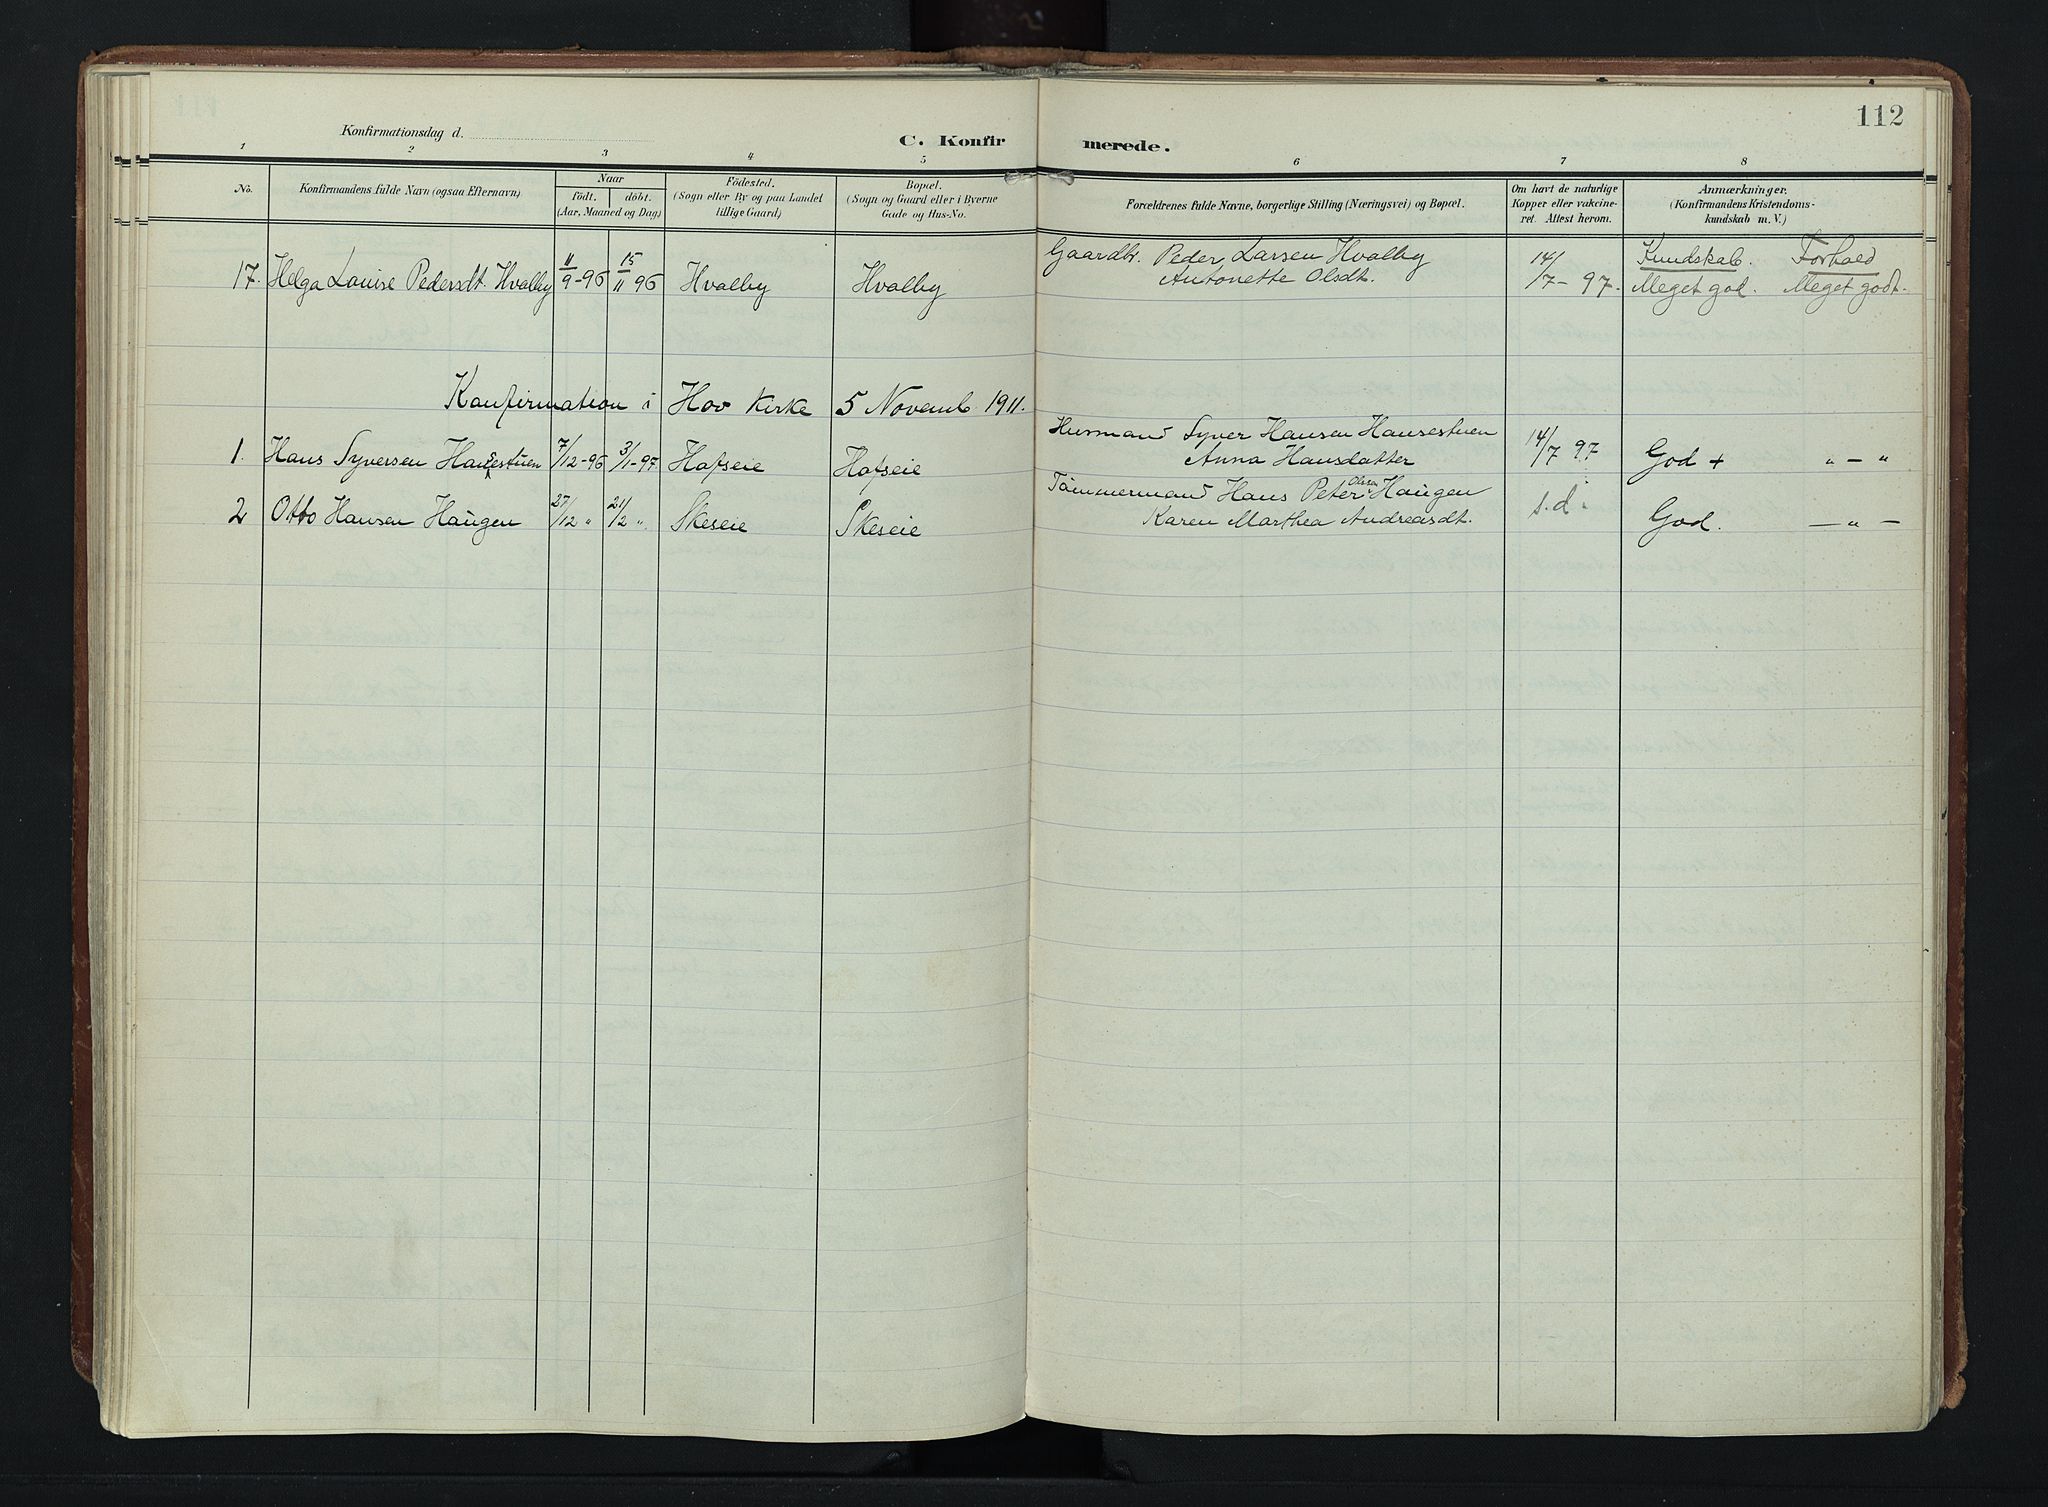 112
Konfirmationsdag d.
C. Konfirmerede.
1 2 3 4 5 6 7 8
No.
Konfirmandens fulde Navn (ogsaa Efternavn)
Naar
födt. döbt.
(Aar, Maaned og Dag)
Födested.
(Sogn eller By og paa Landet
tillige Gaard)
Bopæl.
(Sogn og Gaard eller i Byerne
Gade og Hus-No.
Forældrenes fulde Navne, borgerlige Stilling (Næringsvei) og Bopæl.
Om havt de naturlige
Kopper eller vakcine-
ret. Attest herom.
Anmærkninger.
(Konfirmandens Kristendoms-
kundskab m. V.)
Kundskab. Forhold
Gaardbr. Peder Larsen Hvalby
17. Helga Louise Pedersdt. Hvalby 11/9-96 15/11 96 Hvalby Hvalby Antonette Olsdt. 14/7-97. Meget god. Meget godt.
Konfirmation i Hov Kirke 5 Novemb 1911.
Husmand Syver Hansen Hansestuen
1. Hans Syversen Hansestuen 7/12-96 3/1-97 Hofseie Hofseie Anna Hansdatter 14/7 97 God + " - "
Tömmermand Hans Peter Olsen Haugen
2 Otto Hansen Haugen 27/12 " 21/2 " Skeseie Skeseie Karen Marthea Andreasdt. s.d. God. - " -